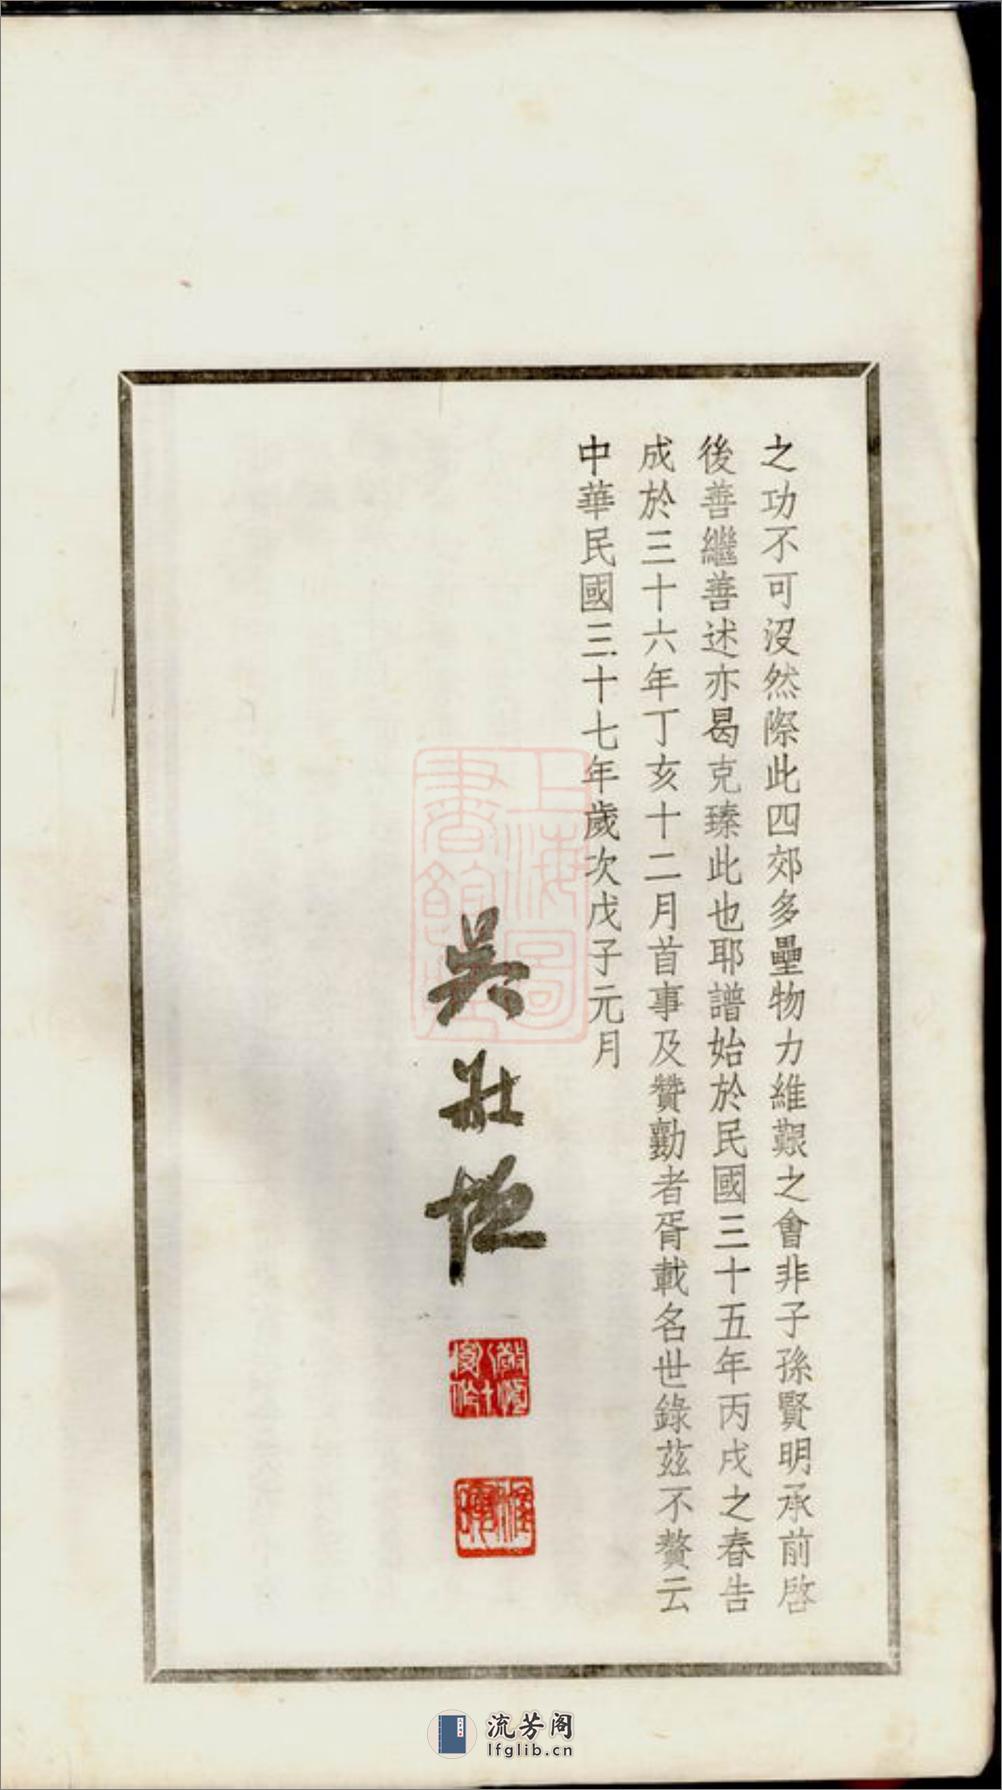 之功不可沒然際此四郊多壘物力維艱之會非子孫賢明承前啓
後善繼善述亦曷克臻此也耶譜始於民國三十五年丙戌之春告
成於三十六年丁亥十二月首事及贊勷者胥載名世錄茲不贅云
中華民國三十七年歲次戊子元月
吳
上海圖書館藏
流芳阁
lfglib.cn